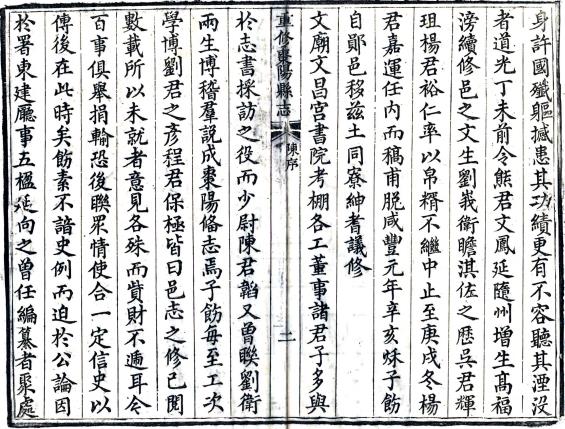 身許國殲軀撼患其功績更有不容聽其湮沒
者道光丁未前令熊君文鳳延隨州增生髙福
滂續修邑之文生劉峩衛瞻淇佐之歷吳君輝
珇楊君裕仁率以帛糈不繼中止至庚戌冬楊
君嘉運任内而稿甫脫咸豐元年辛亥秌子飭
自鄖邑移兹土同寮紳耆議修
文廟文昌宫書院考棚各工董事諸君子多與
重修棗陽縣志
陳序
二
於志書採訪之役而少尉陳君韜又曾聯劉衛
兩生博稽羣説成棗陽俻志焉子飭每至工次
學博劉君之彥程君保極皆曰邑志之修已閱
數載所以未就者意見各殊而貲財不逓耳今
百事俱舉捐輸恐後聯衆情使合一定信史以
傳後在此時矣飭素不諳史例而迫於公論因
於署東建廳事五楹延向之曾任編纂者聚處